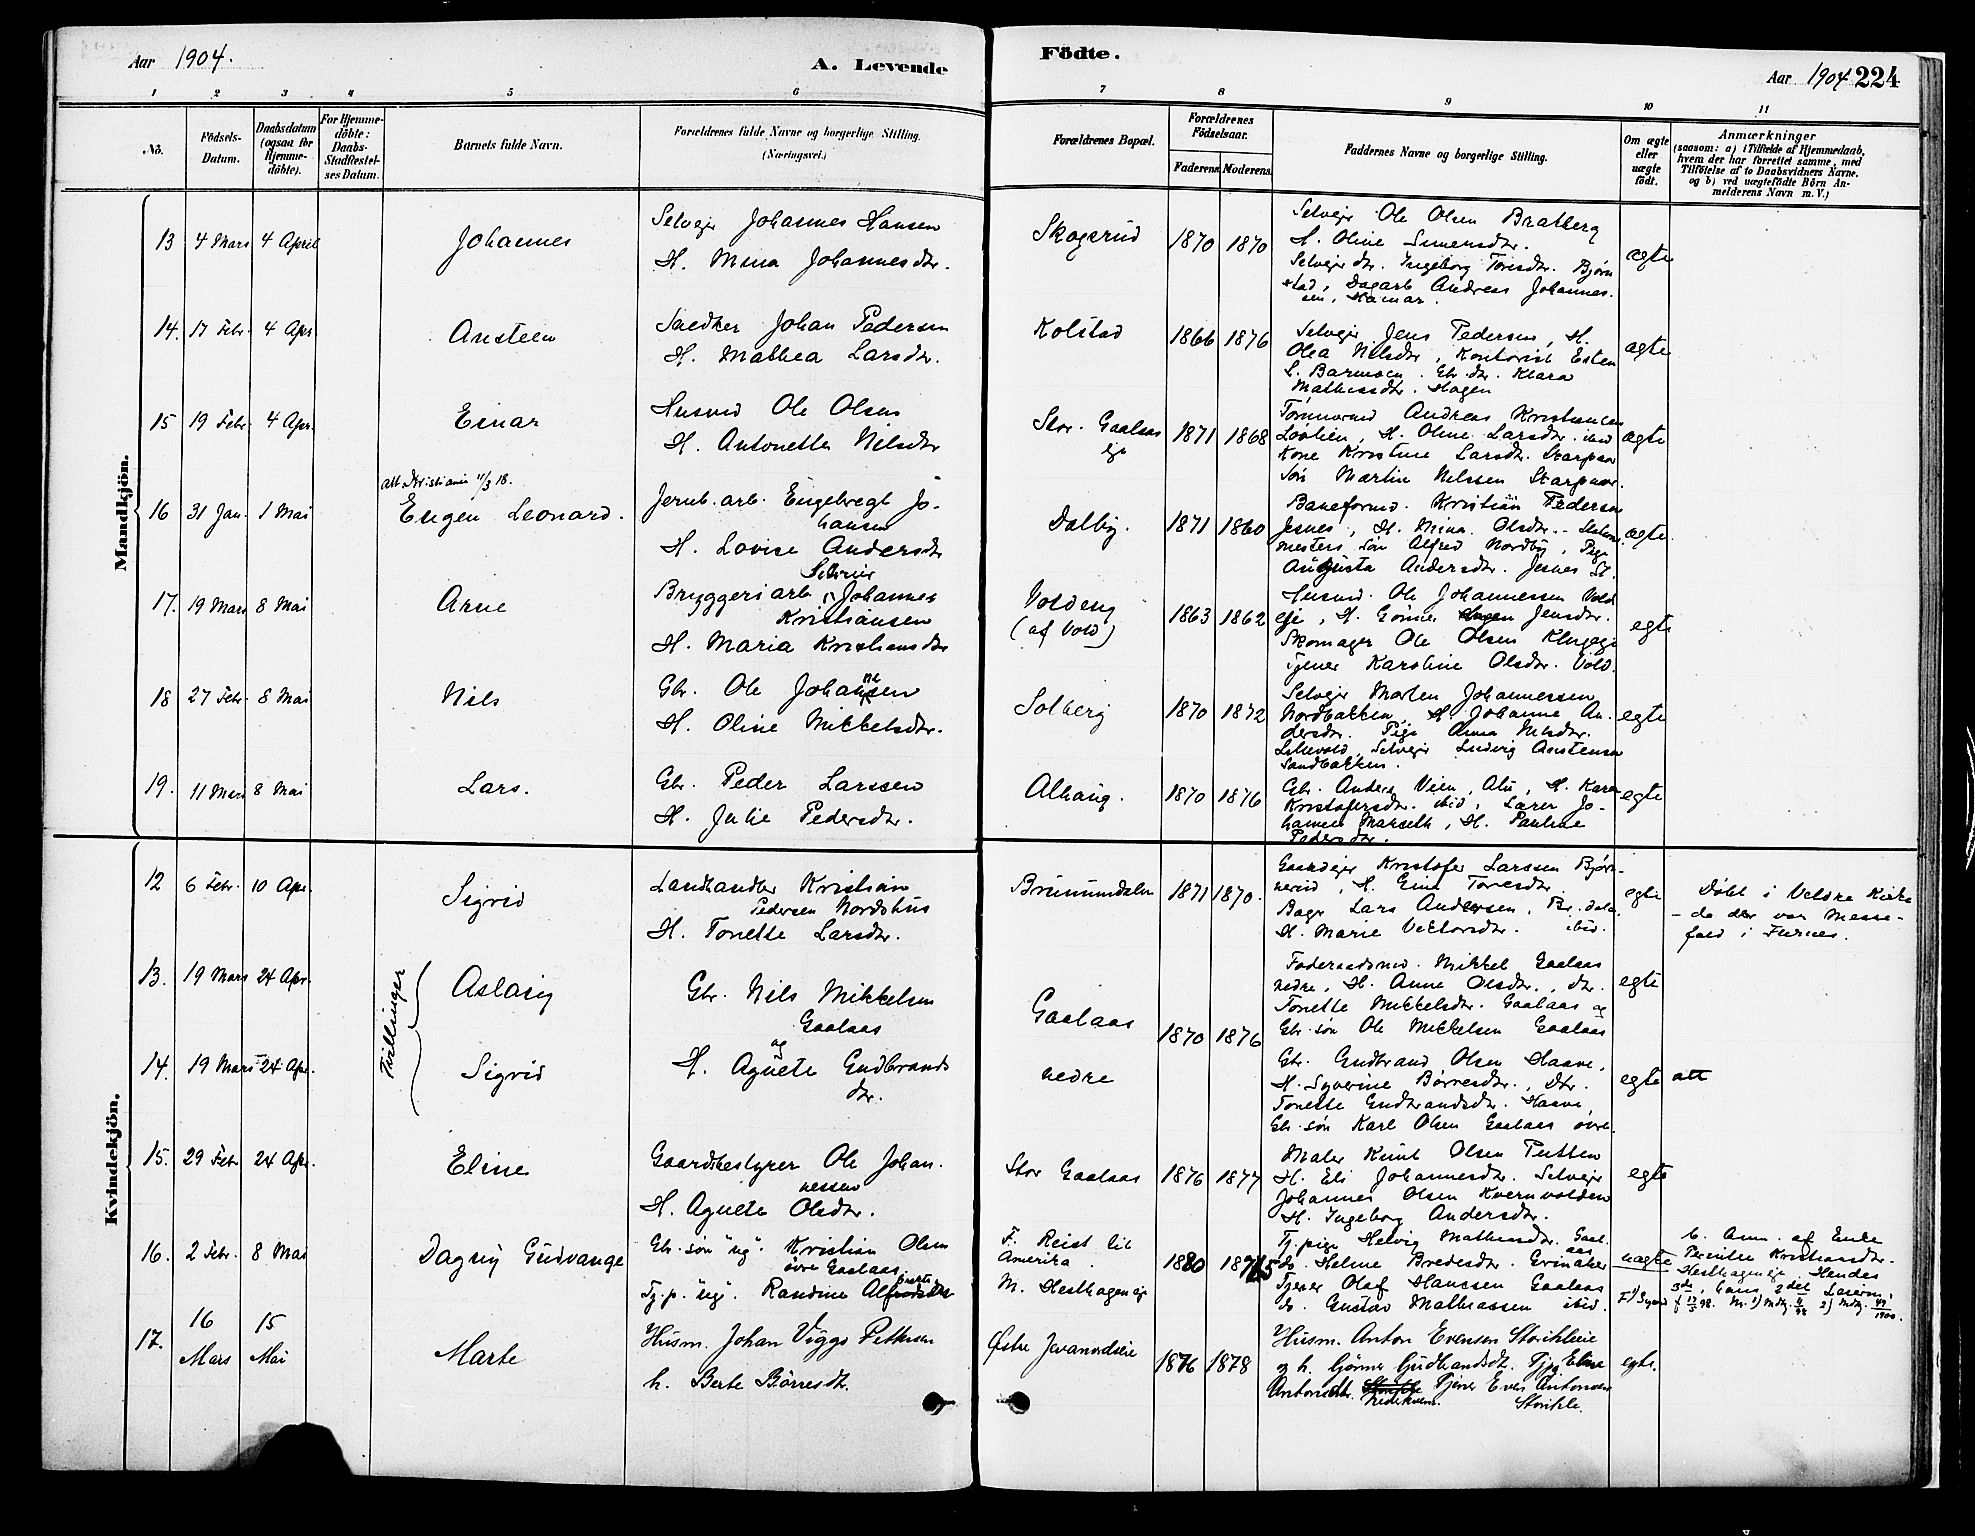 Aar 1904.
A. Levende
Födte.
Aar 1904 224
1 2 3 4 5 6 7 8 9 10 11
No.
Födsels-Datum.
Daabsdatum (ogsaa for Hjemme-döbte).
For Hjemme-döbte: Daabs-Stadfæstel-ses Datum.
Barnets fulde Navn.
Forældrenes fulde Navne og borgerlige Stilling.
(Næringsvei.)
Forældrenes Bopæl.
Forældrenes Födselsaar.
Faderens. Moderens.
Faddernes Navne og borgerlige Stilling.
Om ægte eller uægte födt.
Anmærkninger
(saasom: a) i Tilfælde af Hjemmedaab,
hvem der har forrettet samme, med
Tilföielse af to Daabsvidners Navne.
og b) ved uægtefödte Börn An-
melderens Navn m. V.)
Mandkjön.
13 4 Mars 4 April Johannes
Selvejer Johannes Hansen
H. Mina Johannesdtr.
Skogsrud 1870 1870
Selvejer Ole Olsen Bratberg
H. Oline Simensdtr.
Selvejer dtr. Ingeborg Toresdtr. Bjørn
stad, Dagarb Andreas Johannes-
sen, Hamar.
ægte
14. 17 Febr. 4 Apr Austeen
Snedker Johan Pedersen
H. Mathea Larsdtr.
Kolstad 1866 1876
Selvejer Jens Pedersen, H.
Olea Nilsdtr, Kontorist Esten
S. Barmoen. Gbr. dtr. Klara
Mathissdtr. Hagen
ægte
15 19 Febr. 4 Apr. Einar
Husmd Ole Olsen
H. Antonette Nilsdtr
Stor. Gaalaas eje 1871 1868
Tømmermd Andreas Kristiansen
Løvlien, H. Oline Larsdtr. ibid
Kone Kristine Larsdtr. Skarpnor
Søn Martin Nilssen Skarpnor.
ægte
16 31 Jan. 1 Mai
att. Kristiania 11/3 18.
Eugen Leonard.
Jernb. arb. Engebregt Jo-
hansen
H. Lovise Andersdtr
Dalby. 1871 1860
Baneformd. Kristian Pedersen
Jesnes, H. Mina Olsdtr. Stations
mesters søn Alfred Nordby, Pige
Augusta Andersdtr. Jesnes St.
ægte
17. 19 Mars 8 Mai Arne
Bryggeriarb Johannes
Kristiansen
H. Maria Kristiansdtr
Voldeng
(af Vold) 1863 1862
Husmd. Ole Johannessen Vold
eje, H. Gønner Jensdtr.
Skomager Ole Olsen
Tjener Karoline Olsdtr. Vold.
egte
18 27 Febr. 8 Mai Nils
Gbr. Ole Johannesen
H. Oline Mikkelsdtr.
Solberg 1870 1872
Selvejer Morten Johannessen
Nordbakken, H. Johanne An-
dersdtr. Pige Anna Nilsdtr.
Lillevold, Selvejer Ludvig Austensen
Sandbakken.
egte
19. 11 Mars 8 Mai Lars.
Gbr. Peder Larssen
H. Julie Pedersdtr.
Alhaug. 1870 1876
Gbr. Anders Veen, Alu, H. Karen
Kristofersdtr. ibid, Lærer Jo-
hannes Marseth, H. Pauline
Pedersdtr.
egte
Kvindekjön.
12 6 Febr. 10 Apr. Sigrid
Landhandler Kristian
Pedersen Nordshus
H. Tonette Larsdtr.
Brumunddalen 1871 1870.
Gaardejer Kristofer Larssen Bjørn-
nerud, H. Eina Toresdtr
Bager Lars Andersen, Br. dalen
H. Marie Viktorsdtr. ibid.
egte
Døbt i Veldre Kirke
da der var Messe-
fald i Furnes.
Tvillinger
13. 19 Mars 24 Apr. Aslaug
Gbr. Nils Mikkelsen
Gaalaas
og
Gaalaas 1870 1876
Føderaadsmd. Mikkel Gaalaas
nedre, H. Anne Olsdtr., dtr.
Tonette Mikkelsdtr. Gaalaas og
Gbr. søn Ole Mikkelsen Gaalaas
egte
14. 19 Mars 24 Apr. Sigrid
H. Agnete Gudbrands
dtr.
nedre
Gbr. Gudbrand Olsen Haave,
H. Syverine Børresdtr., dtr.
Tonette Gudbrandsdtr. Haave,
Gbr. søn Karl Olsen Gaalaas øvre.
egte att
15. 29 Febr. 24 Apr. Eline
Gaardbestyrer Ole Johan-
nessen
H. Agnete Olsdtr.
Stor Gaalaas 1876 1877
Maler Knut Olsen Putten
H. Eli Johannesdtr. Selvejer
Johannes Olsen Kvernvolden
H. Ingeborg Andersdtr.
egte
16. 2 Febr. 8 Mai Dagny Gudvange
Gbr. søn "ug". Kristian Olsen
øvre Gaalaas
Tj. p. "ug". Randine
F. Reist til
Amerika
M. Hesthagen eje
1880 1875
Tj. pige Helvig Mathiasdtr. Gaal-
aas
do. Helene Bredesdtr. Grinaker
Tjener Olaf Hanssen Gaalaas
do. Gustav Mathiassen ibid.
uægte
b. Anm. af Enke
Pernille Kristiansdtr.
Hesthagen eje. Hendes
17. 16 Mars 15 Mai Marte
Husm. Johan Viggo Pettersen
h. Berte Børresdt.
Østre Jevanordseie 1876 1878
Husm. Anton Evensen Storihleie
og h. Gjørner Gudbrandsdt. Pige Eline
Antonsdtr. Tjener Even Antonsen
Storihle.
egte.